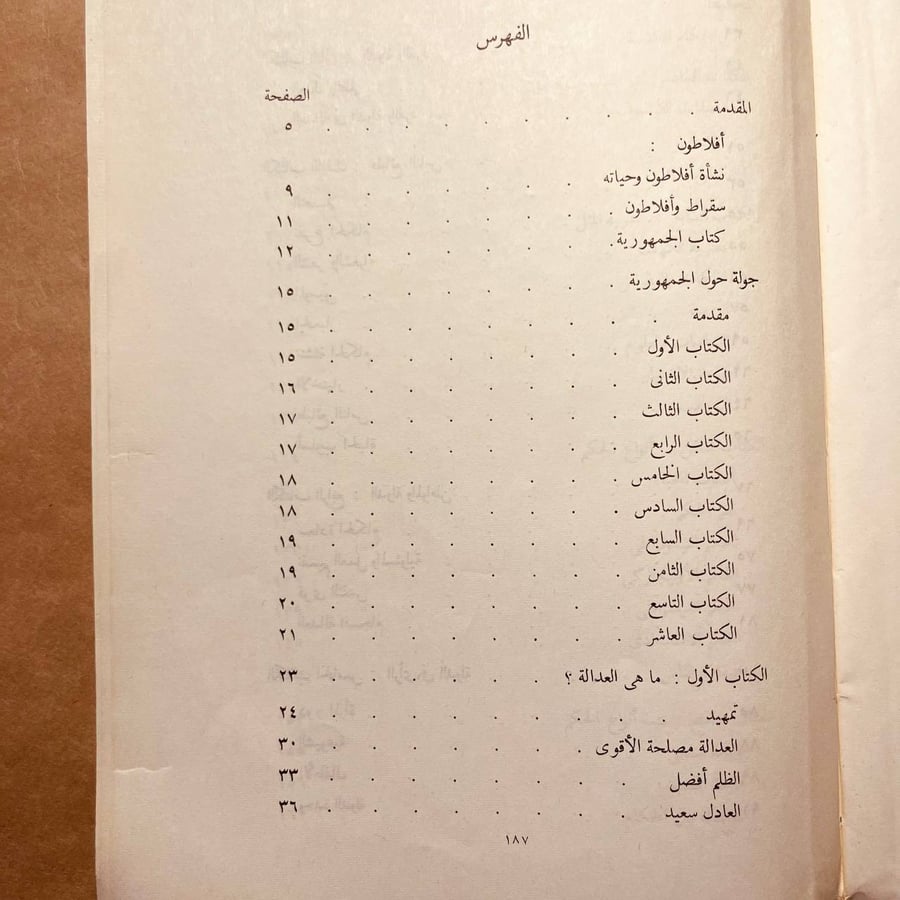 الفهرس
الصفحة
المقدمة . . . . . . . . . ٥
أفلاطون :
نشأة أفلاطون وحياته . . . . . . . ٩
سقراط وأفلاطون . . . . . . . . ١١
كتاب الجمهورية . . . . . . . . ١٢
جولة حول الجمهورية . . . . . . . ١٥
مقدمة . . . . . . . . . ١٥
الكتاب الأول . . . . . . . . ١٥
الكتاب الثانى . . . . . . . . ١٦
الكتاب الثالث . . . . . . . . ١٧
الكتاب الرابع . . . . . . . . ١٧
الكتاب الخامس . . . . . . . . ١٨
الكتاب السادس . . . . . . . . ١٨
الكتاب السابع . . . . . . . . ١٩
الكتاب الثامن . . . . . . . . ١٩
الكتاب التاسع . . . . . . . . ٢٠
الكتاب العاشر . . . . . . . . ٢١
الكتاب الأول : ما هى العدالة ؟ . . . . . . ٢٣
تمهيد . . . . . . . . . ٢٤
العدالة مصلحة الأقوى . . . . . . . ٣٠
الظلم أفضل . . . . . . . . ٣٣
العادل سعيد . . . . . . . . ٣٦
١٨٧